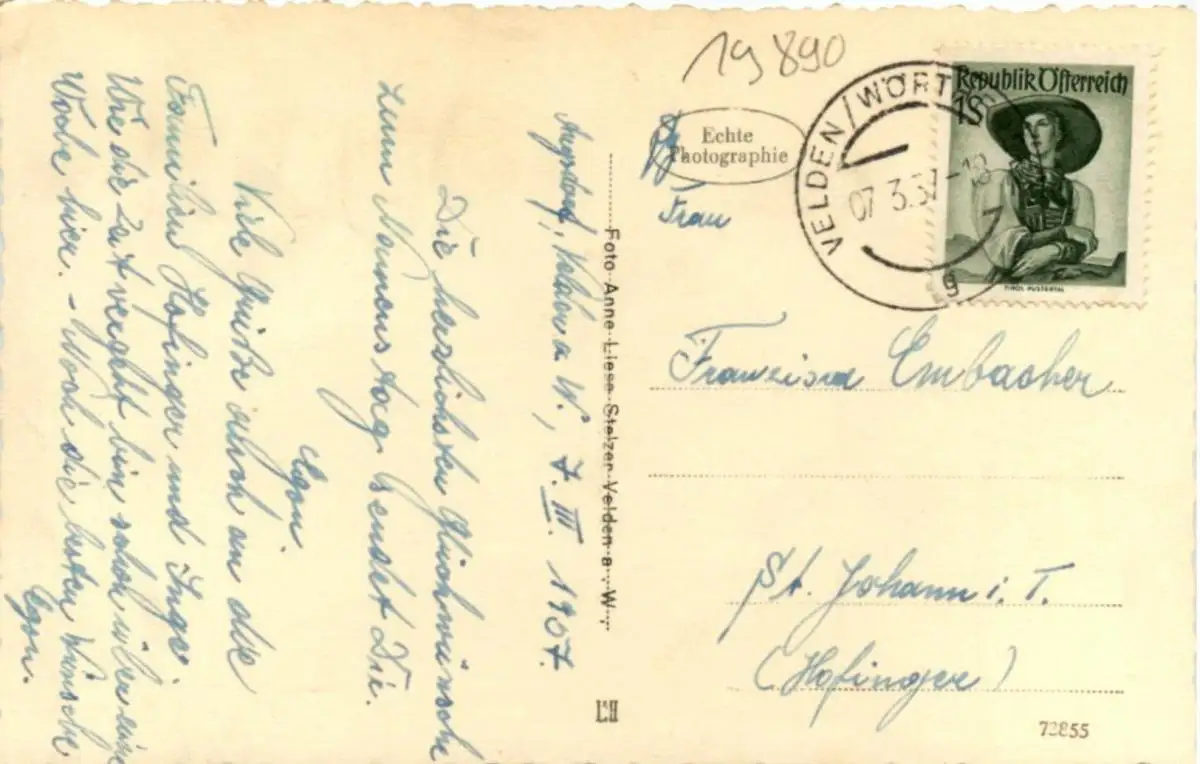 19890
Echte
Photographie
Frau
VELDEN/WÖRTH
07.3.57-18
g
Republik Österreich
1S
TIROL-PUSTERTAL
Franziska Embacher
St. Johann i. T.
(Hofinger)
73855
Foto Anne-Liese Stelzer Velden a. W.
Velden a W., 7. III. 1957.
Die herzlichsten Glückwünsche
zum Namenstag sendet Dir
Egon.
Viele Grüße auch an die
Familien Hofinger und Inge.
Wie die Zeit vergeht bin schon über eine
Woche hier. - Noch die besten Wünsche
Egon.